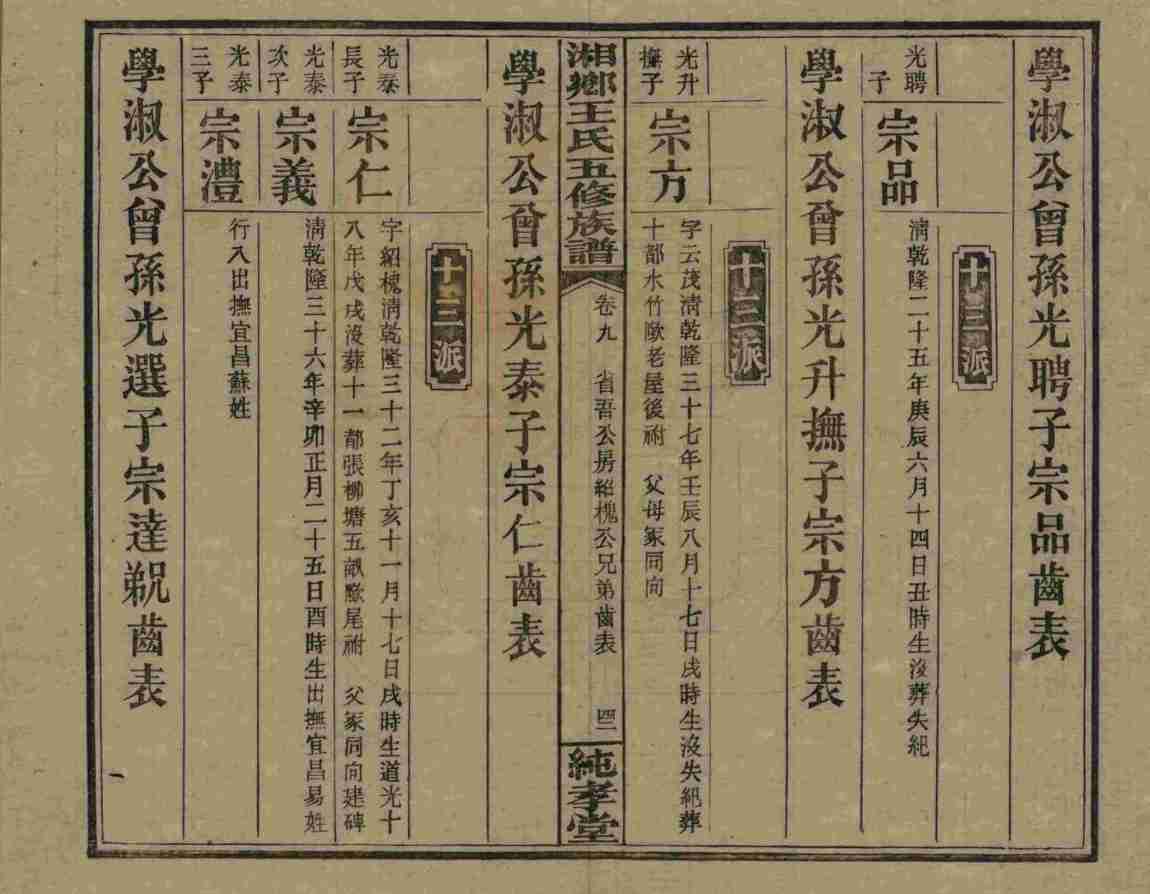 學淑公曾孫光聘子宗品齒表
十三派
光聘子
宗品
淸乾隆二十五年庚辰六月十四日丑時生沒葬失紀
學淑公曾孫光升撫子宗方齒表
十三派
光升撫子
宗方
字云茂淸乾隆三十七年壬辰八月十七日戌時生沒失紀葬
十都水竹歐老屋後祔　父母冢同向
湘鄉王氏五修族譜
卷九　省吾公房紹槐公兄弟齒表
純孝堂
學淑公曾孫光泰子宗仁齒表
十三派
光泰長子
宗仁
字紹槐淸乾隆三十二年丁亥十一月十七日戌時生道光十
八年戊戌沒葬十一都張柳塘五畝墈尾祔　父冢同向建碑
光泰次子
宗義
淸乾隆三十六年辛卯正月二十五日酉時生出撫宜昌易姓
光泰三子
宗澧
行入出撫宜昌蘇姓
學淑公曾孫光選子宗達齒表